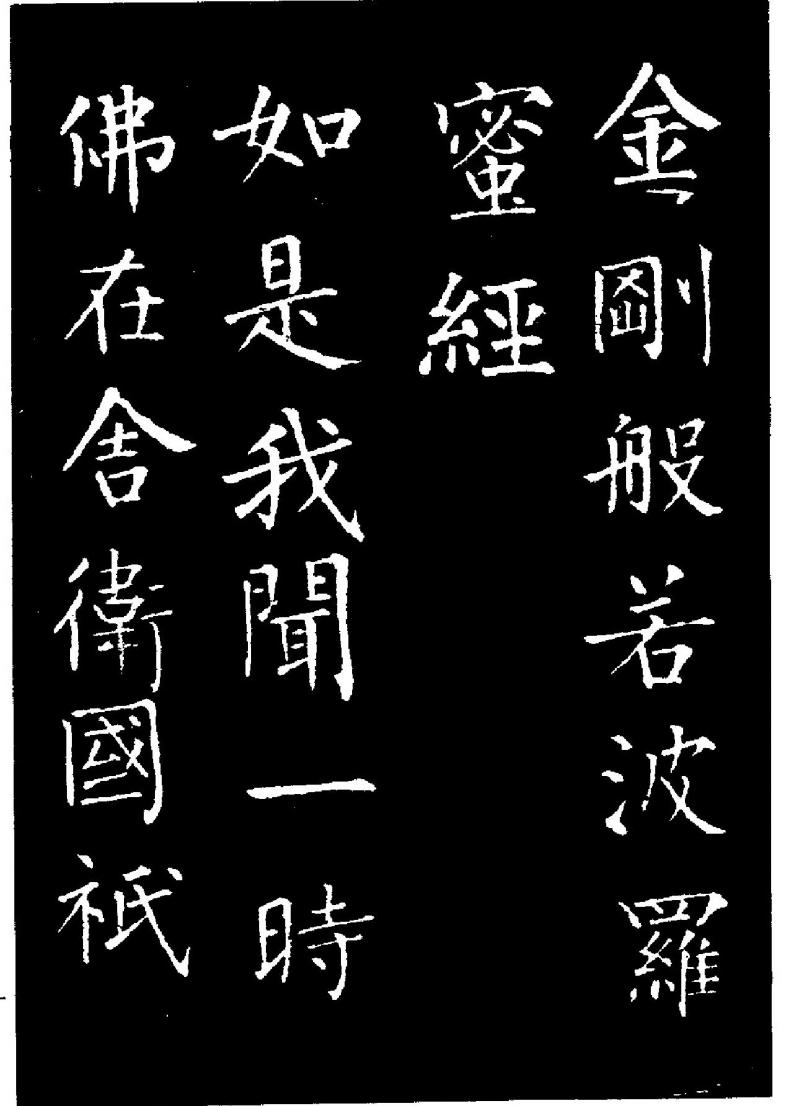 金剛般若波羅
蜜經
如是我聞一時
佛在舍衛國祇